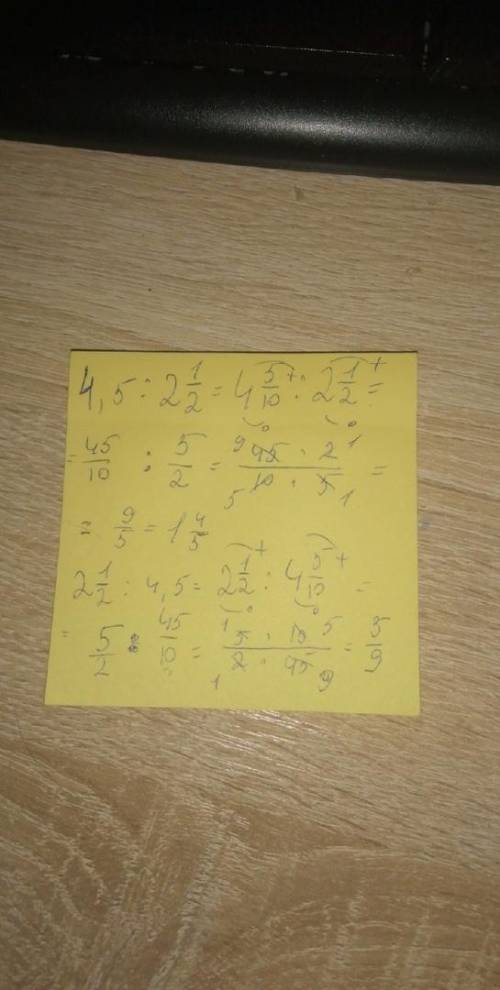 4,5 : 2 1/2 = 4 5/10 : 2 1/2 =
= 45/10 : 5/2 = 45 · 2 / 10 · 5 =
= 9/5 = 1 4/5
2 1/2 : 4,5 = 2 1/2 : 4 5/10 =
= 5/2 : 45/10 = 5 · 10 / 2 · 45 = 5/9